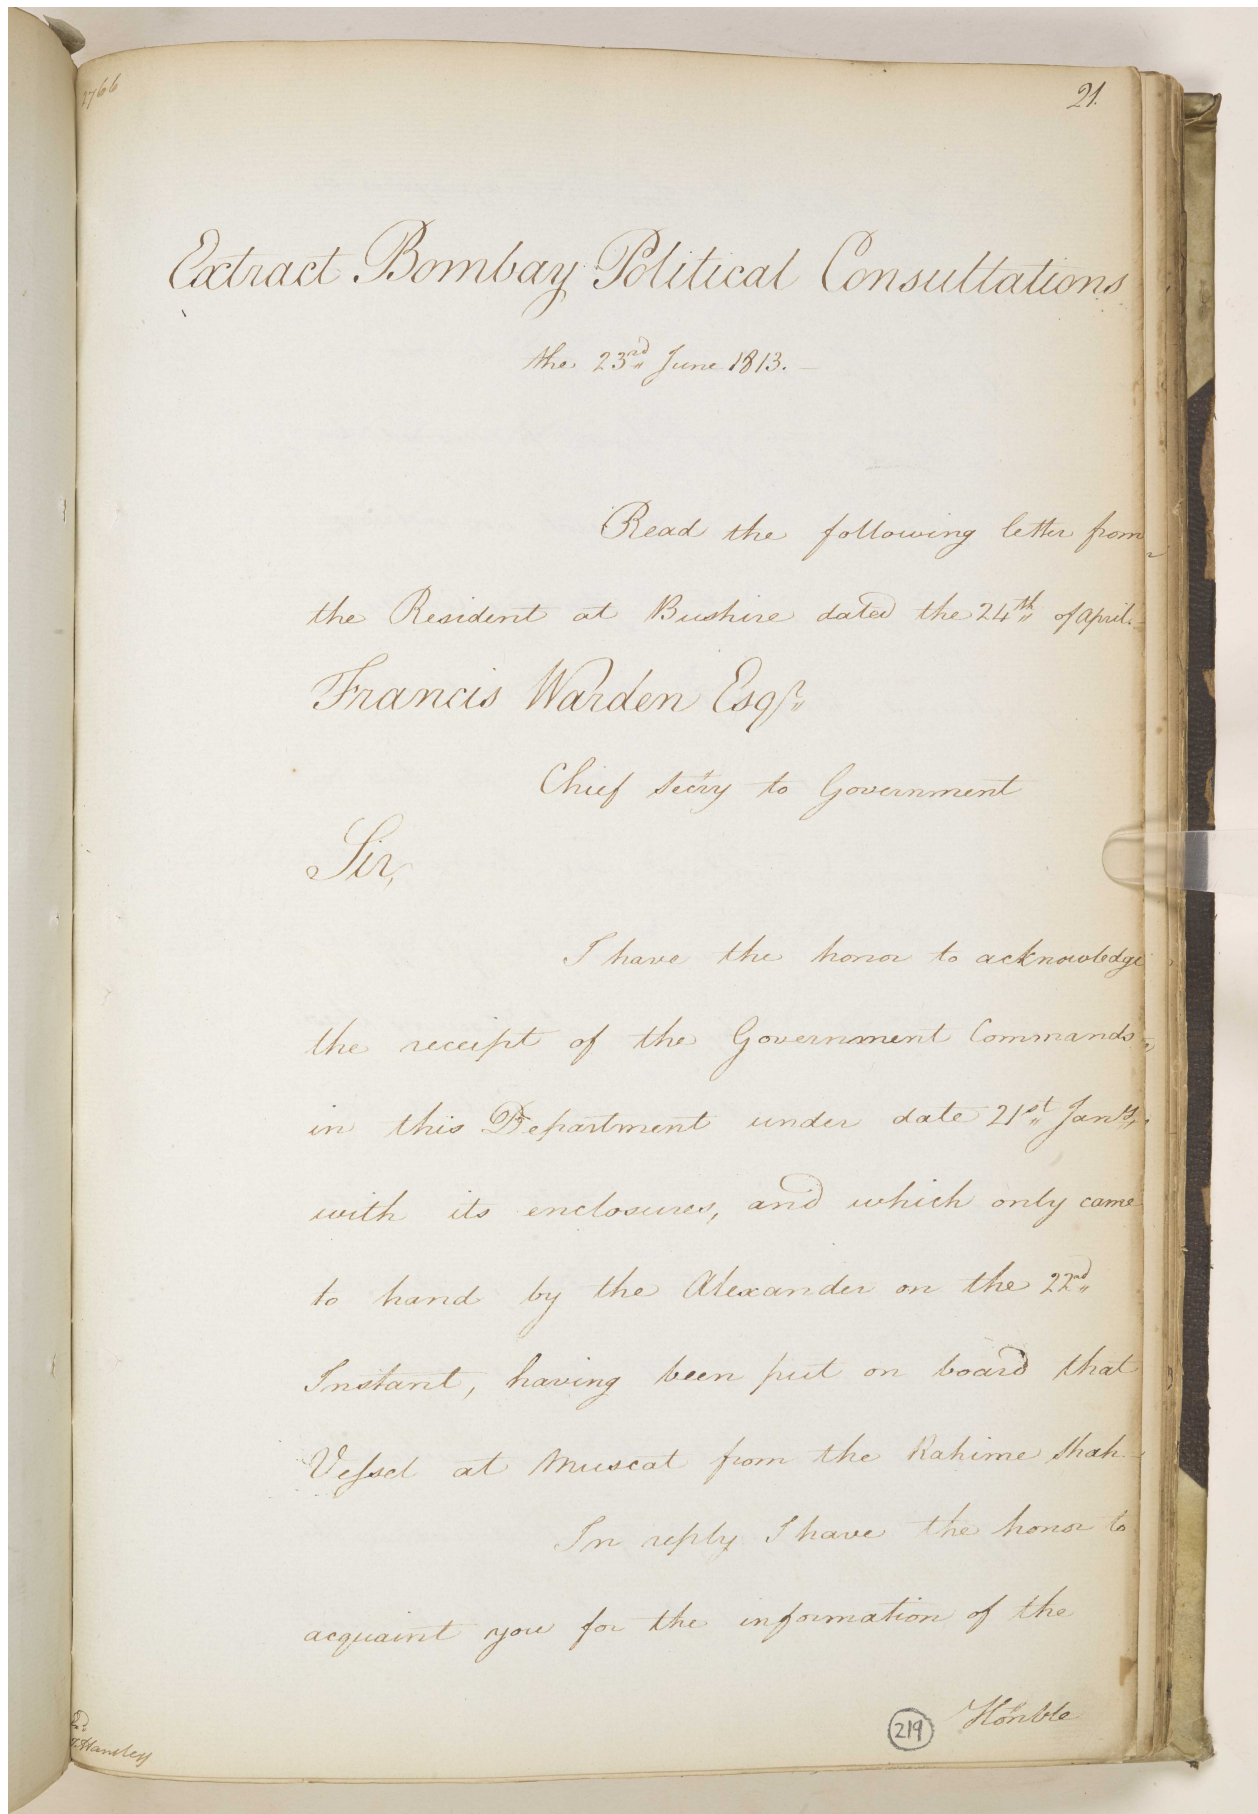 1766
21.
Extract Bombay Political Consultations
the 23rd June 1813.
Read the following letter from
the Resident at Bushire dated the 24th of April.
Francis Warden Esqr.
Chief Secry to Government
Sir,
I have the honor to acknowledge
the receipt of the Government Commands
in this Department under date 21st Jany.
with its enclosures, and which only came
to hand by the Alexander on the 22nd
Instant, having been put on board that
Vessel at Muscat from the Rahime Shah
In reply I have the honor to
acquaint you for the information of the
Honble
219